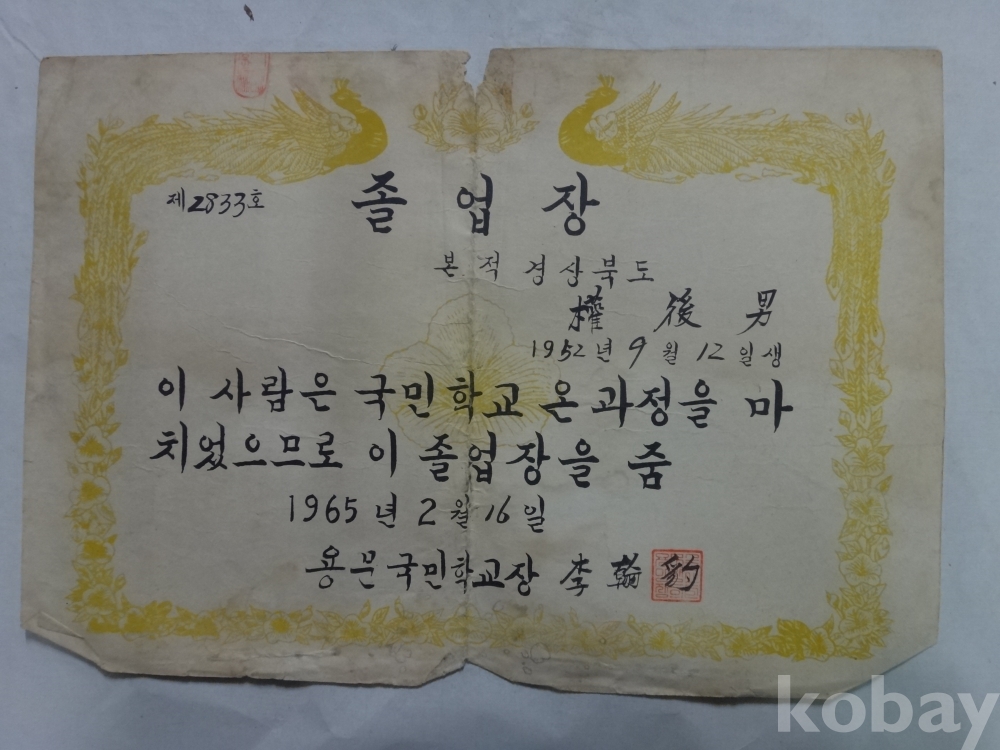 제2833호
졸업장
본적 경상북도
權後男
1952년 9월 12일생
이 사람은 국민학교 온 과정을 마
치었으므로 이 졸업장을 줌
1965년 2월 16일
용문국민학교장 李輪豹
kobay